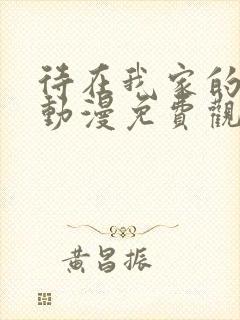 待在我家的
動漫免費觀
黃昌振